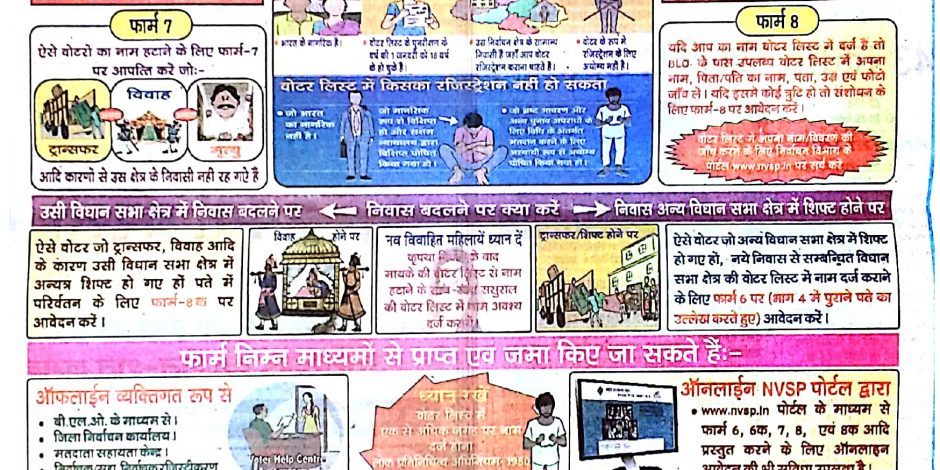 फार्म 7
ऐसे वोटरो का नाम हटाने के लिए फार्म-7
पर आपत्ति करें जो:-
विवाह
ट्रान्सफर
मृत्यु
आदि कारणो से उस क्षेत्र के निवासी नही रह गऐ हैं
भारत के नागरिक है।
वोटर लिस्ट के पुनरीक्षण के
वर्ष की 1 जनवरी को 18 वर्ष
के हो चुके है।
उस निर्वाचन क्षेत्र के सामान्य
निवासी है जहाँ आप वोटर
रजिस्ट्रेशन कराना चाहते है।
वोटर के रूप में
रजिस्ट्रेशन के लिए
अयोग्य नही है।
वोटर लिस्ट में किसका रजिस्ट्रेशन नहीं हो सकता
• जो भारत
का नागरिक
नहीं है।
• जो मानसिक
रूप से विक्षिप्त
हो और सक्षम
न्यायालय द्वारा
विक्षिप्त घोषित
किया गया हो।
• जो भ्रष्ट आचरण और
अन्य चुनाव अपराधों के
लिए विधि के अंतर्गत
मतदान करने के लिए
अस्थायी रूप से अयोग्य
घोषित किया गया हो।
फार्म 8
यदि आप का नाम वोटर लिस्ट में दर्ज है तो
BLO- के पास उपलब्ध वोटर लिस्ट में अपना
नाम, पिता/पति का नाम, पता, उम्र एवं फोटो
जाँच ले। यदि इसमे कोई त्रुटि हो तो संशोधन के
लिए फार्म-8 पर आवेदन करें।
वोटर लिस्ट में अपना नाम/विवरण की
जाँच करने के लिए निर्वाचन विभाग के
पोर्टल www.nvsp.in पर सर्च करें
उसी विधान सभा क्षेत्र में निवास बदलने पर ← निवास बदलने पर क्या करें → निवास अन्य विधान सभा क्षेत्र में शिफ्ट होने पर
ऐसे वोटर जो ट्रान्सफर, विवाह आदि
के कारण उसी विधान सभा क्षेत्र में
अन्यत्र शिफ्ट हो गए हों पते में
परिर्वतन के लिए फार्म-8क पर
आवेदन करें।
विवाह होने पर
नव विवाहित महिलायें ध्यान दें
कृपया के बाद
मायके की वोटर लिस्ट से नाम
हटाने के साथ-साथ ससुराल
की वोटर लिस्ट में नाम अवश्य
दर्ज करायें।
ट्रान्सफर/शिफ्ट होने पर
ऐसे वोटर जो अन्य विधान सभा क्षेत्र में शिफ्ट
हो गए हो, नये निवास से सम्बन्धित विधान
सभा क्षेत्र की वोटर लिस्ट में नाम दर्ज कराने
के लिए फार्म 6 पर (भाग 4 में पुराने पते का
उल्लेख करते हुए) आवेदन करें।
फार्म निम्न माध्यमों से प्राप्त एवं जमा किए जा सकते हैं:-
ऑफलाईन व्यक्तिगत रूप से
• बी.एल.ओ. के माध्यम से।
• जिला निर्वाचन कार्यालय।
• मतदाता सहायता केन्द्र।
Voter Help Centre
ध्यान रखे
वोटर लिस्ट में
एक से अधिक जगह पर नाम
दर्ज होना
लोक प्रतिनिधित्व अधिनियम-1950
ऑनलाईन NVSP पोर्टल द्वारा
• www.nvsp.in पोर्टल के माध्यम से
फार्म 6, 6क, 7, 8, एवं 8क आदि
प्रस्तुत करने के लिए ऑनलाइन